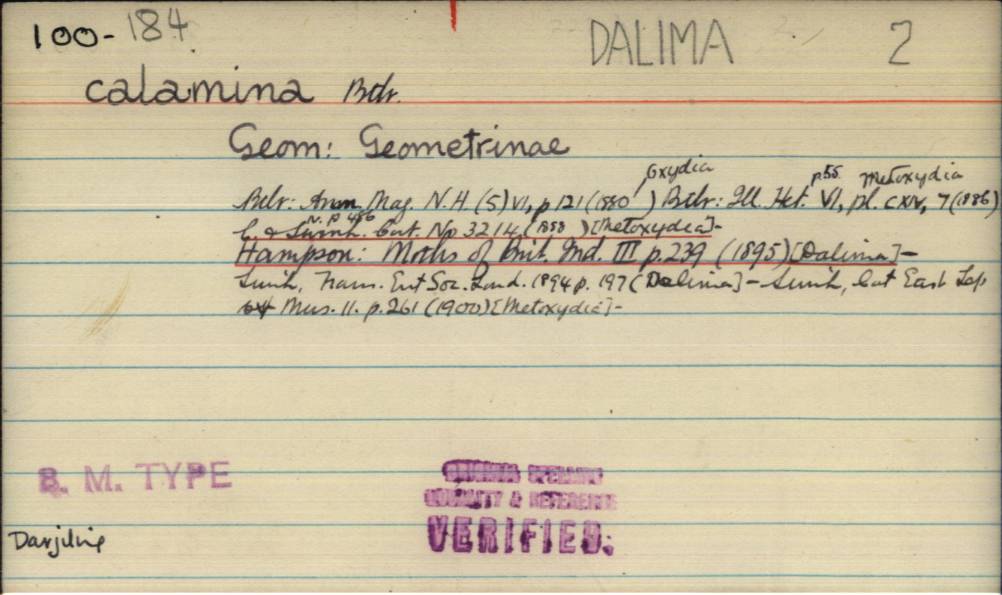 100-184 DALIMA 2
calamina Btlr.
Geom: Geometrinae
Oxydia p55 Metoxydia
Btlr: Ann. Mag. N.H (5) VI, p 121 (1880) Btlr: Ill. Het. VI, pl. CXIV, 7 (1886)
N. p 486
C & Swinh. Cat. No 3214 (1888) [Metoxydia]-
Hampson: Moths of Brit. Ind. III p.239 (1895) [Dalima]-
Swinh, Trans. Ent Soc. Lond. 1894 p. 197 (Dalima] - Swinh, Cat East Lep
Mus. 11. p. 261 (1900) [Metoxydia]-
B. M. TYPE
ORIGINAL SPELLING
LOCALITY & REFERENCE
VERIFIED.
Darjiling